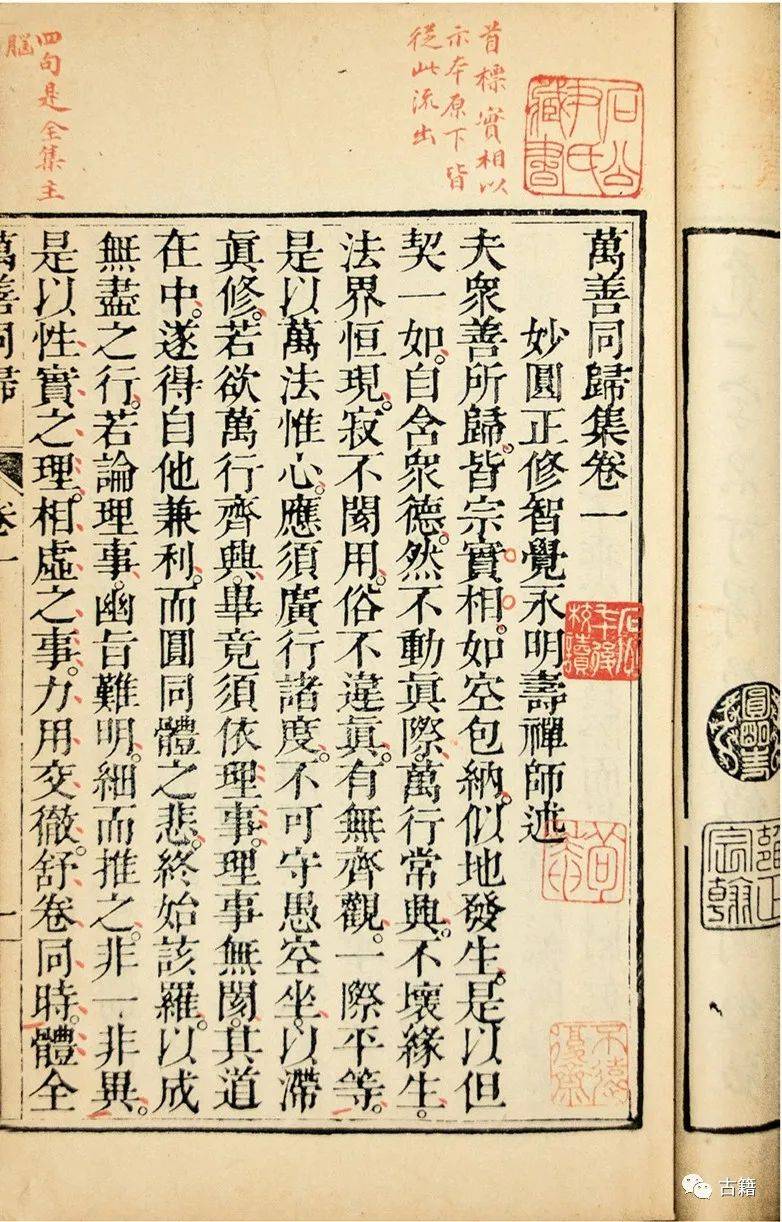 首標實相以
示本原下皆
從此流出
四句是全集主
腦
石公
尹氏
藏書
萬善同歸集卷一
妙圓正修智覺永明壽禪師述
夫衆善所歸。皆宗實相。如空包納。似地發生。是以但
契一如。自含衆德。然不動眞際。萬行常興。不壞緣生。
法界恒現。寂不閡用。俗不違眞。有無齊觀。一際平等。
是以萬法惟心。應須廣行諸度。不可守愚空坐。以滯
眞修。若欲萬行齊興。畢竟須依理事。理事無閡。其道
在中。遂得自他兼利。而圓同體之悲。終始該羅。以成
無盡之行。若論理事。幽旨難明。細而推之。非一非異。
是以性實之理。相虛之事。力用交徹。舒卷同時。體全
萬善同歸
卷一
一
圓明
雍正
宸翰
古籍